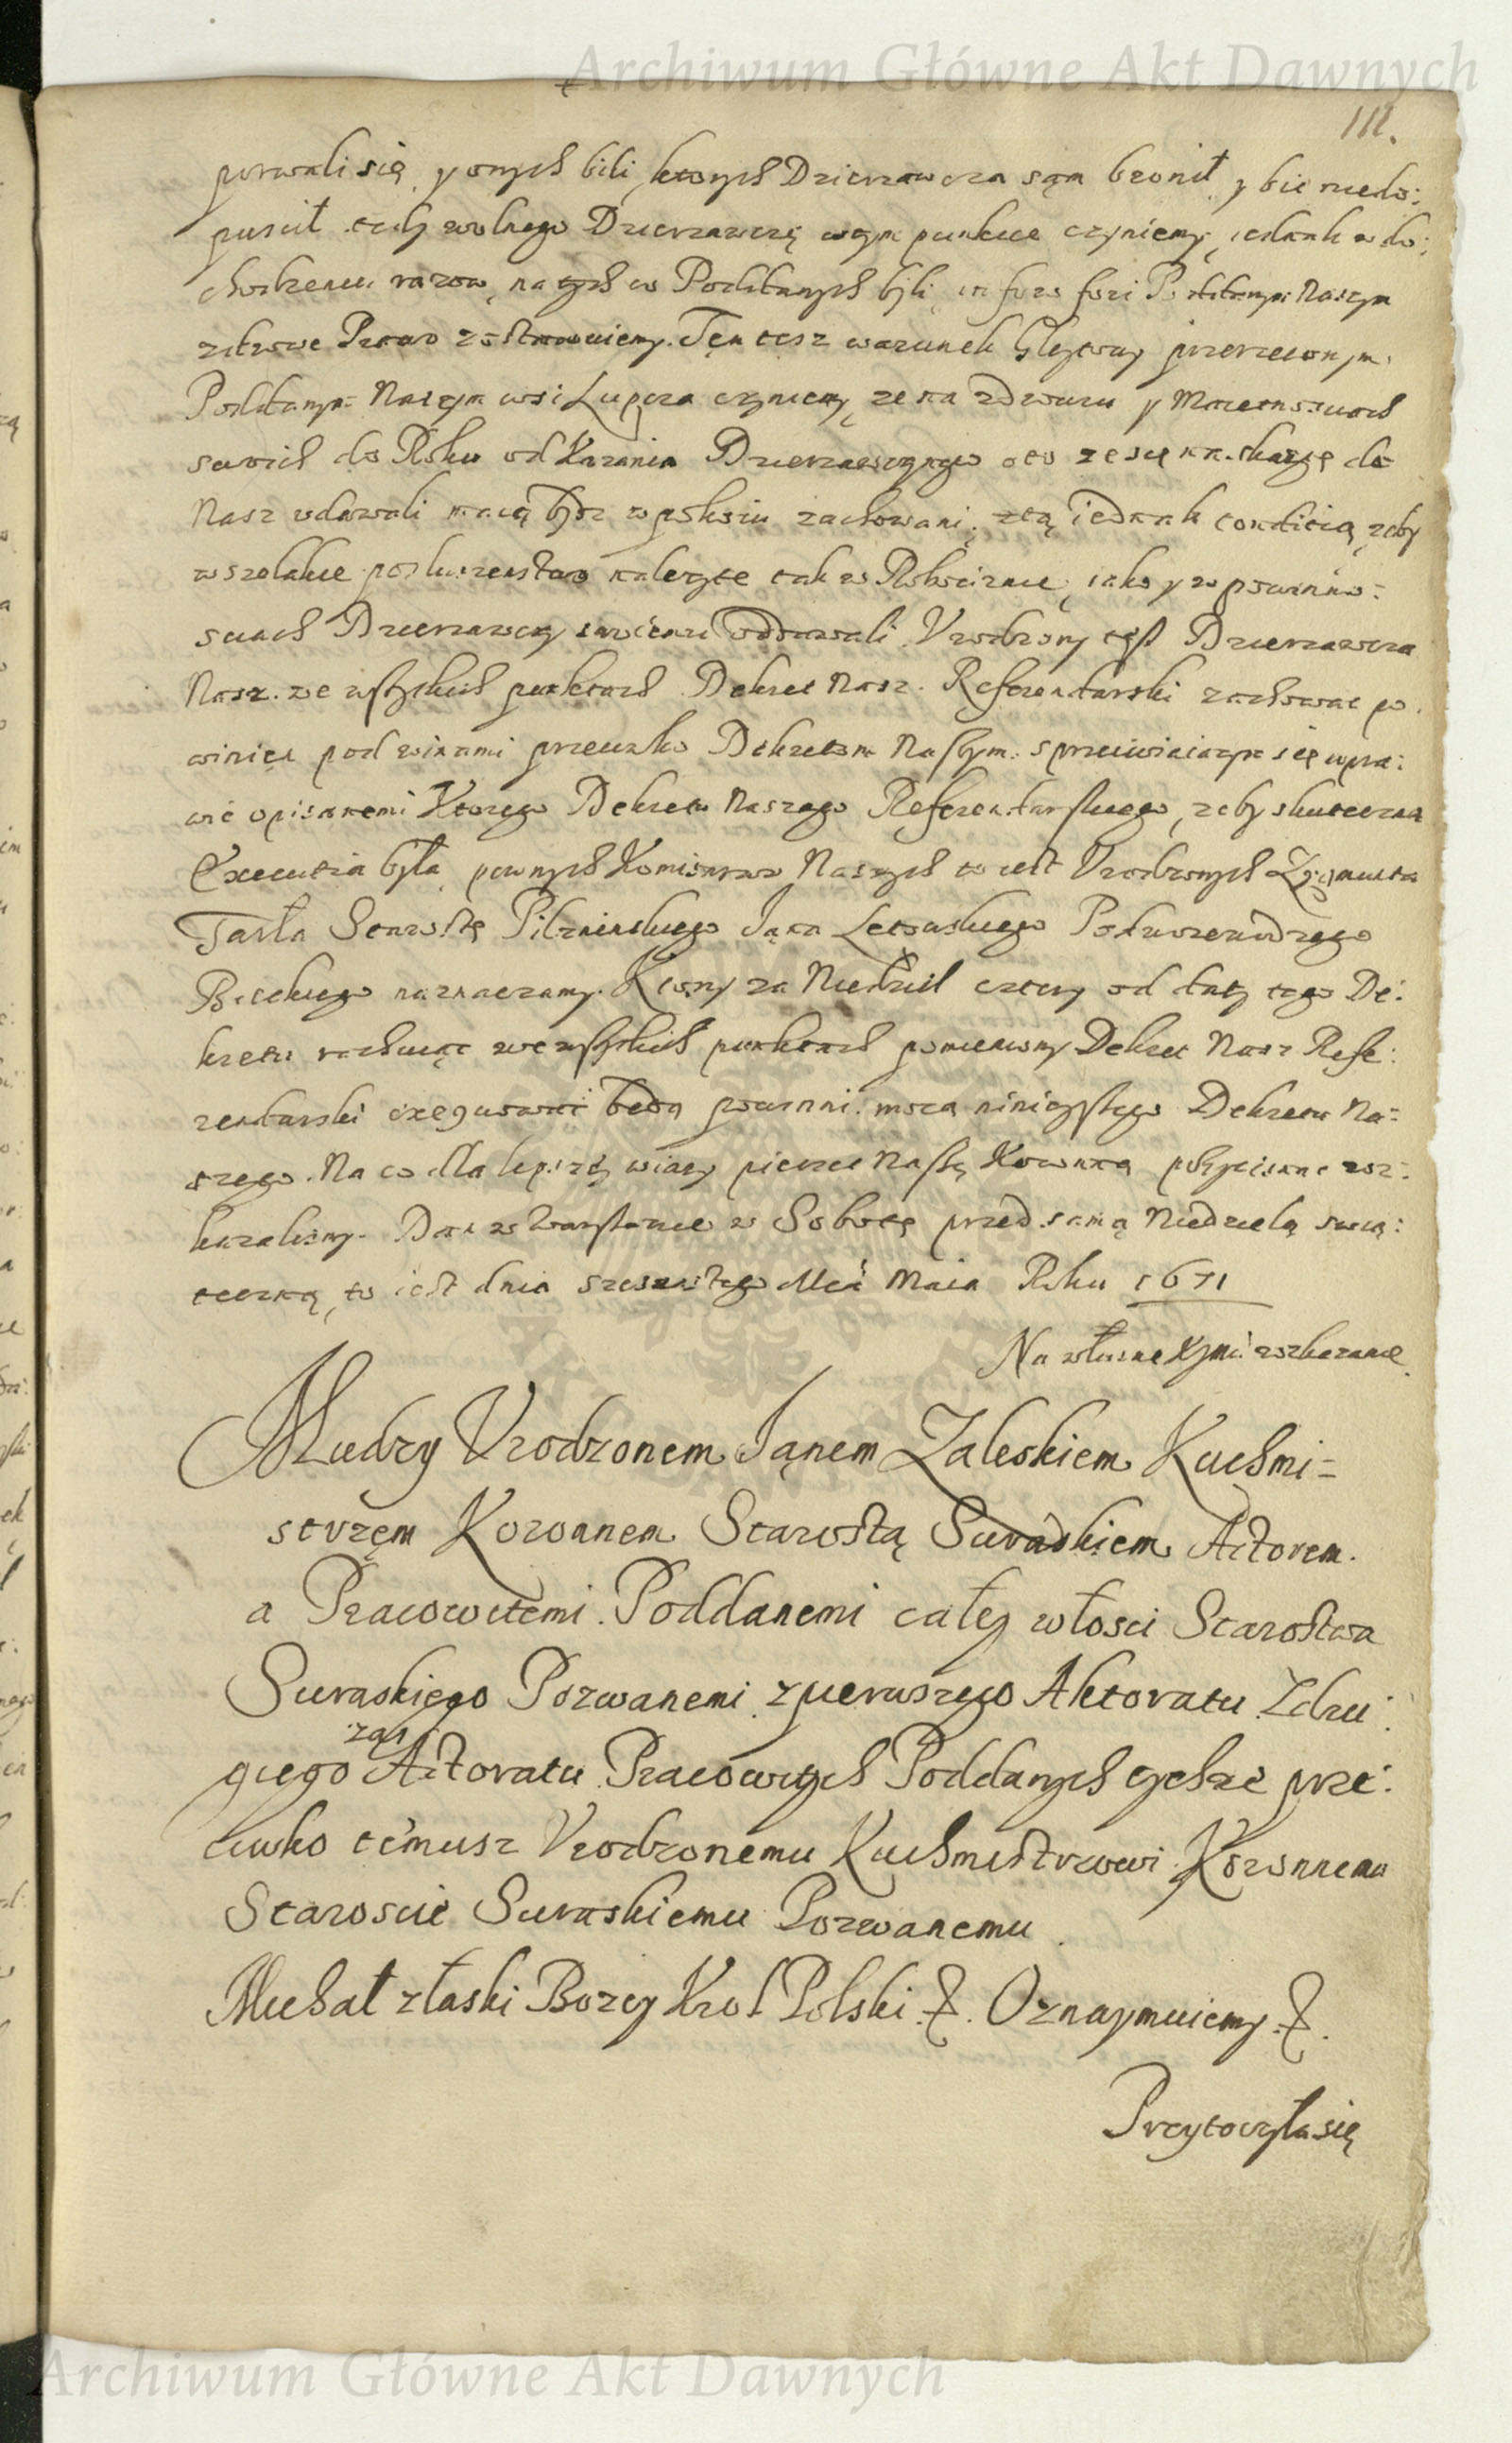 Archiwum Główne Akt Dawnych
111.
porwali się, y onych bili, ktorych Dzierzawca sąm bronił, y bić niedo:
puscił, tedy wolnego Dzierzawcę wtym punkcie czyniemy, iednak o do:
chodzeniu razow, na tych co Poddanych byli, in foro fori Poddanym Naszym
zdrowe Prawo zostawuiemy. Tęn tesz warunek Gleytowy przerzeconym
Poddanym Naszym wsi Łupcza czyniemy, ze na zdrowiu y Maiętnosciach
swoich do Roku od karania Dzierzawczego oto ze się na skargę do
Nasz udawali maią bydz w pokoiu zachowani, ztą iednak conditią, zeby
wszelakie posłuszenstwo nalezyte tak w Robociznie, iako y w powinno:
sciach Dzierzawcy swoiemu oddawali. Vrodzony tesz Dzierzawca
Nasz we wszystkich punktach Dekret Nasz Referendarski zachowac po:
winięn pod winami przeciwko Dekretom Naszym sprzeciwiaiącym się w pra:
wie opisanemi Ktorego Dekretu Naszego Referendarskiego, zeby skuteczna
Executia była, pewnych Komisarzow Naszych to iest Vrodzonych Zygmunta
Tarła Starostę Pilznienskiego Jąna Podstarosciego
Bieckiego naznaczamy. Ktorzy za Niedziel cztery od daty tego De:
kretu rachuiąc we wszystkich punktach pomieniony Dekret Nasz Refe:
rendarski exequowac będą powinni mocą ninieyszego Dekretu Na:
szego. Na co dla lepszey wiary pieczęć Naszę Koronną przycisnąc roz:
kazalismy. Dan w Warszawie w Sobotę przed samą Niedzielą swią:
teczną, to iest dnia szesnastego Mca Maia Roku 1671
Na własne KJMci rozkazanie.
Między Vrodzonem Jąnem Zaleskiem Kuchmi=
strzęm Koronnem Starostą Suraskiem Actorem
a Pracowitemi Poddanemi całey włosci Starostwa
Suraskiego Pozwanemi zpierwszego Aktoratu Zdru:
giego zas Actoratu Pracowitych Poddanych tychze prze:
ciwko temusz Vrodzonemu Kuchmistrzowi Koronnemu
Staroscie Suraskiemu Pozwanemu.
Michał złaski Bozey Krol Polski &. Oznaymuiemy &.
Przytoczyła się
Archiwum Główne Akt Dawnych